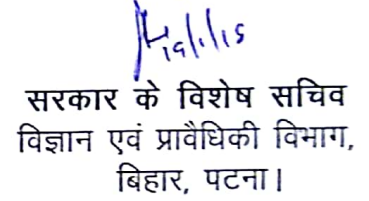 19/1/15
सरकार के विशेष सचिव
विज्ञान एवं प्रावैधिकी विभाग,
बिहार, पटना।